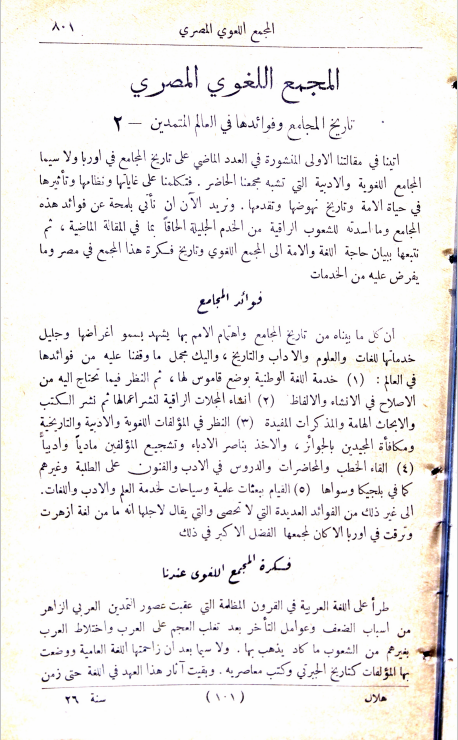 المجمع اللغوي المصري
٨٠١
المجمع اللغوي المصري
تاريخ المجامع وفوائدها في العالم المتمدين — ٢
اتينا في مقالتنا الاولى المنشورة في العدد الماضي على تاريخ المجامع في اوربا ولا سيما
المجامع اللغوية والادبية التي تشبه مجمعنا الحاضر . فتكلمنا على غاياتها ونظامها وتأثيرها
في حياة الامة وتاريخ نهوضها وتقدمها . ونريد الآن ان نأتي بلمحة عن فوائد هذه
المجامع وما أسدته للشعوب الراقية من الخدم الجليلة الحاقاً بما في المقالة الماضية ، ثم
نتبعها ببيان حاجة اللغة والامة الى المجمع اللغوي وتاريخ فسكرة هذا المجمع في مصر وما
يفرض عليه من الخدمات
فوائد المجامع
أن كل ما بيناه من تاريخ المجامع واهتمام الامم بها يشهد بسمو اغراضها وجليل
خدماتها للغات والعلوم والآداب والتاريخ ، واليك مجمل ما وقفنا عليه من فوائدها
في العالم : (١) خدمة اللغة الوطنية بوضع قاموس لها ، ثم النظر فيما تحتاج اليه من
الاصلاح في الانشاء والالفاظ (٢) انشاء المجلات الراقية لنشر اعمالها ثم نشر الكتب
والابحاث الهامة والمذكرات المفيدة (٣) النظر في المؤلفات اللغوية والادبية والتاريخية
ومكافأة المجيدين بالجوائز ، والاخذ بناصر الادباء وتشجيع المؤلفين مادياً وادبياً
(٤) القاء الخطب والمحاضرات والدروس في الادب والفنون على الطلبة وغيرهم
كما في بلجيكا وسواها (٥) القيام ببعثات علمية وسياحات لخدمة العلم والادب واللغات.
الى غير ذلك من الفوائد العديدة التي لا تحصى والتي يقال لاجلها انه ما من لغة ازهرت
وترقت في اوربا الا كان لمجمعها الفضل الاكبر في ذلك
فسكرة المجمع اللغوى عندنا
طرأ على اللغة العربية في القرون المظلمة التي عقبت عصور التمدين العربي الزاهر
من اسباب الضعف وعوامل التأخر بعد تغلب العجم على العرب واختلاط العرب
بغيرهم من الشعوب ما كاد يذهب بها . ولا سيما بعد أن زاحمتها اللغة العامية ووضعت
بها المؤلفات كتاريخ الجبرتي وكتب معاصريه . وبقيت آثار هذا العهد في اللغة حتى زمن
هلال
(١٠١)
سنة ٢٦